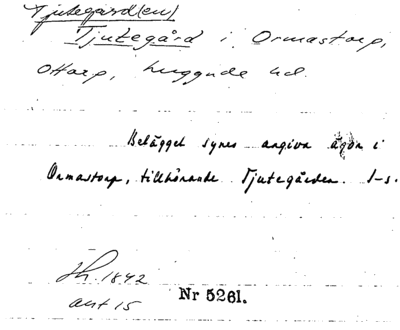 Tjutegård(en)
Tjutegård i Ormastorp,
Ottarp, Luggude hd.
Belägget synes angiva ägor i
Ormastorp, tillhörande Tjutegården. I-s.
1842
akt 15
Nr 5261.